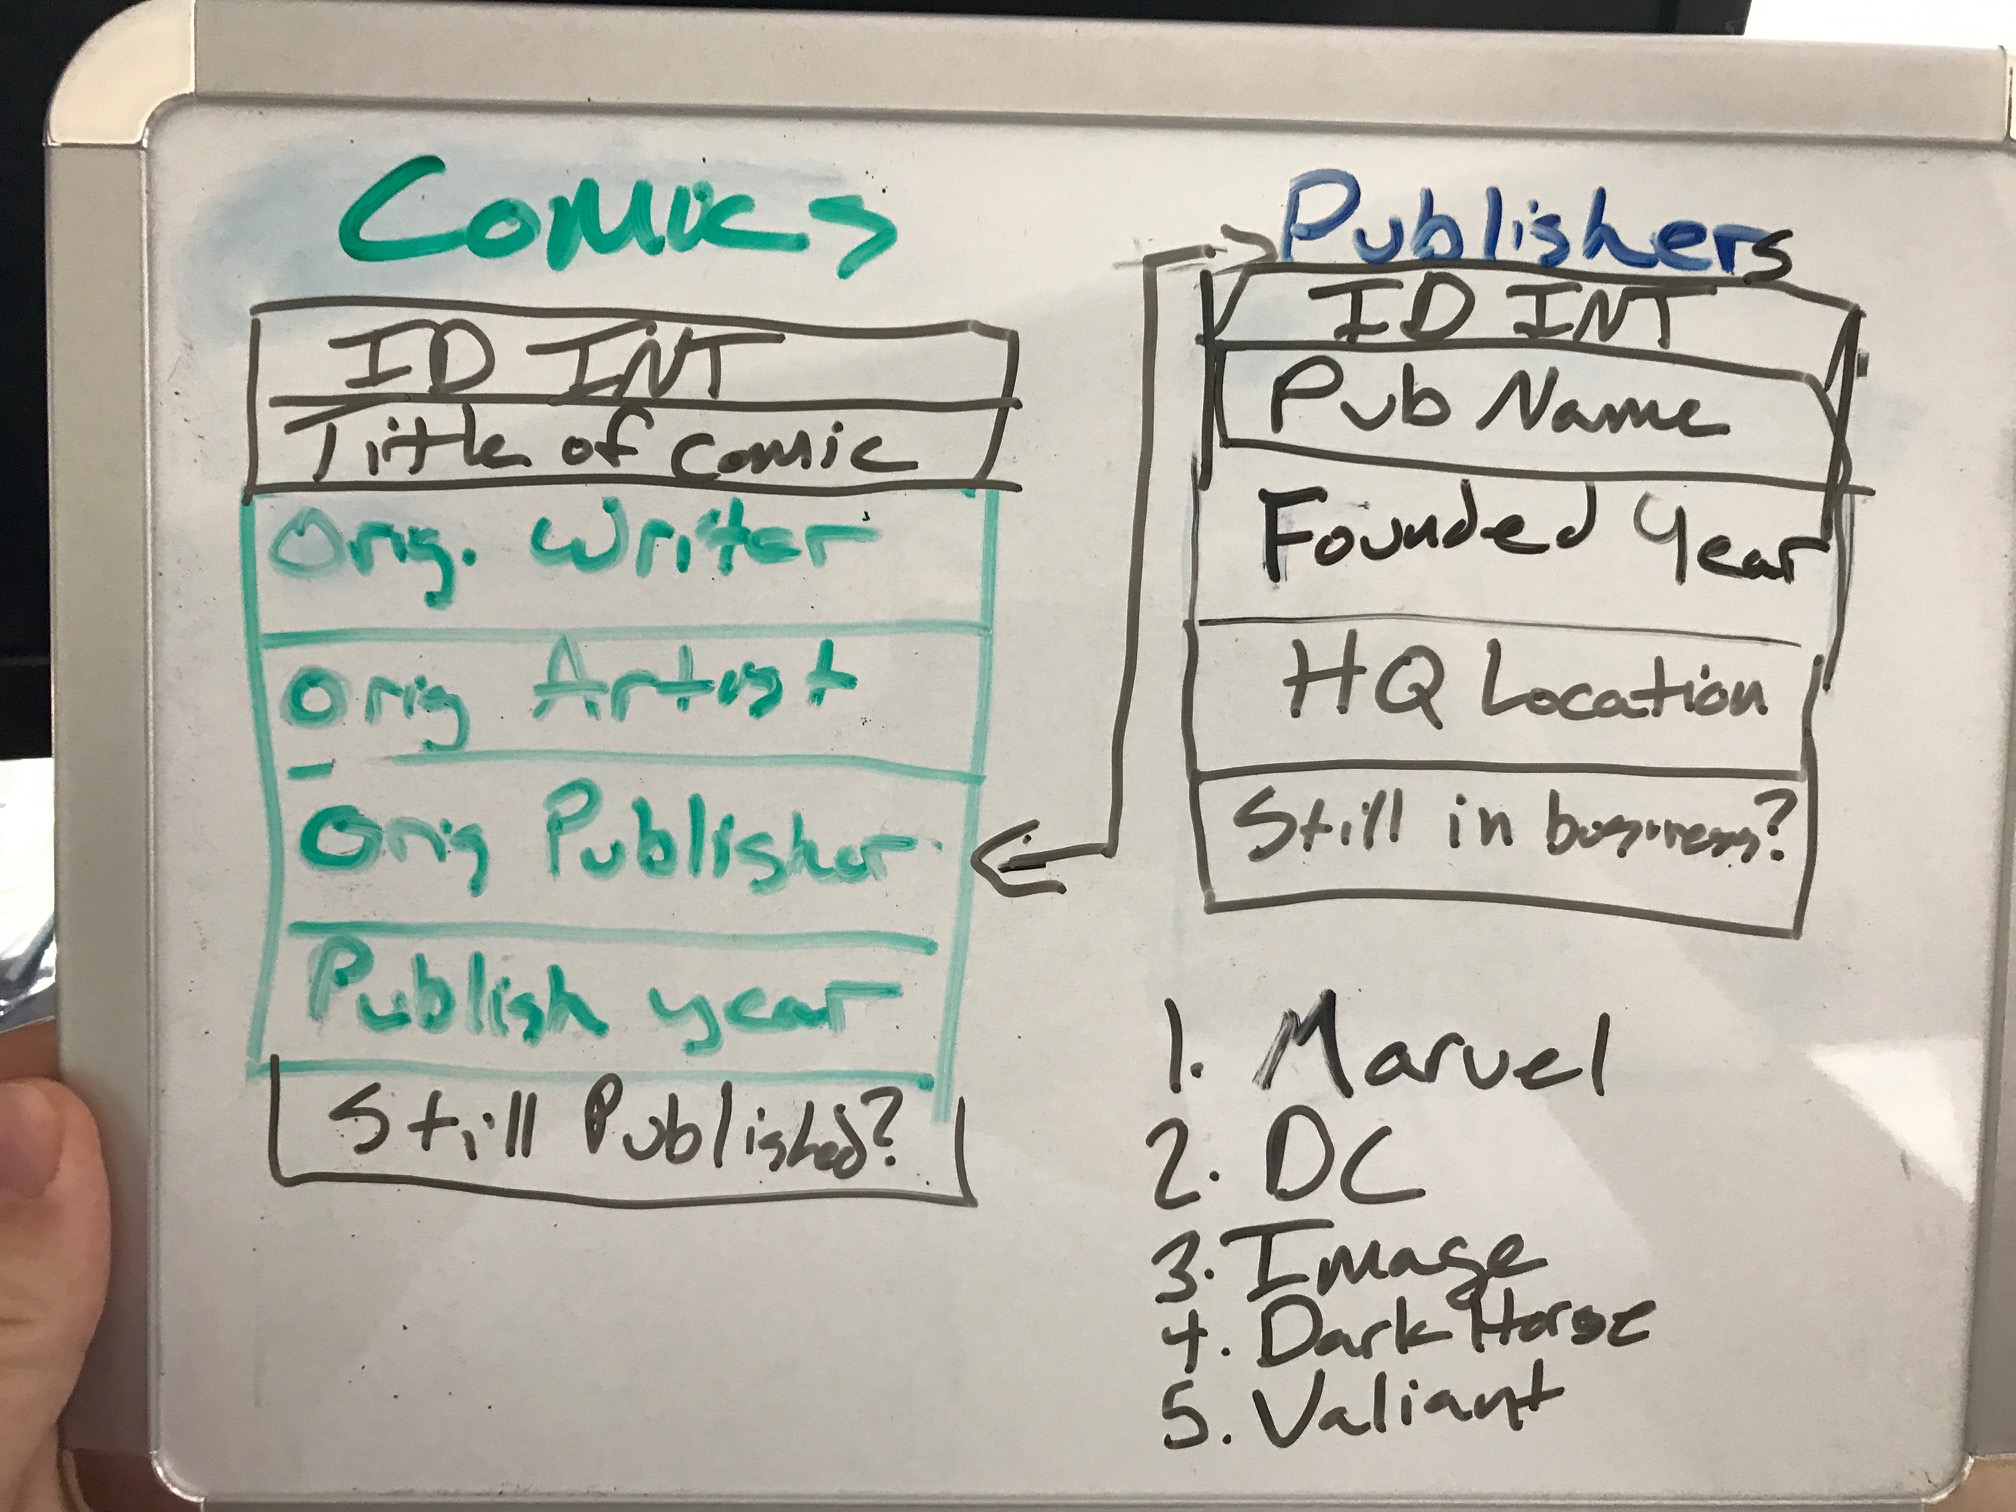 Comics
ID INT
Title of comic
Orig. Writer
Orig Artist
Orig Publisher
Publish year
Still Published?
Publishers
ID INT
Pub Name
Founded Year
HQ Location
Still in business?
1. Marvel
2. DC
3. Image
4. Dark Horse
5. Valiant